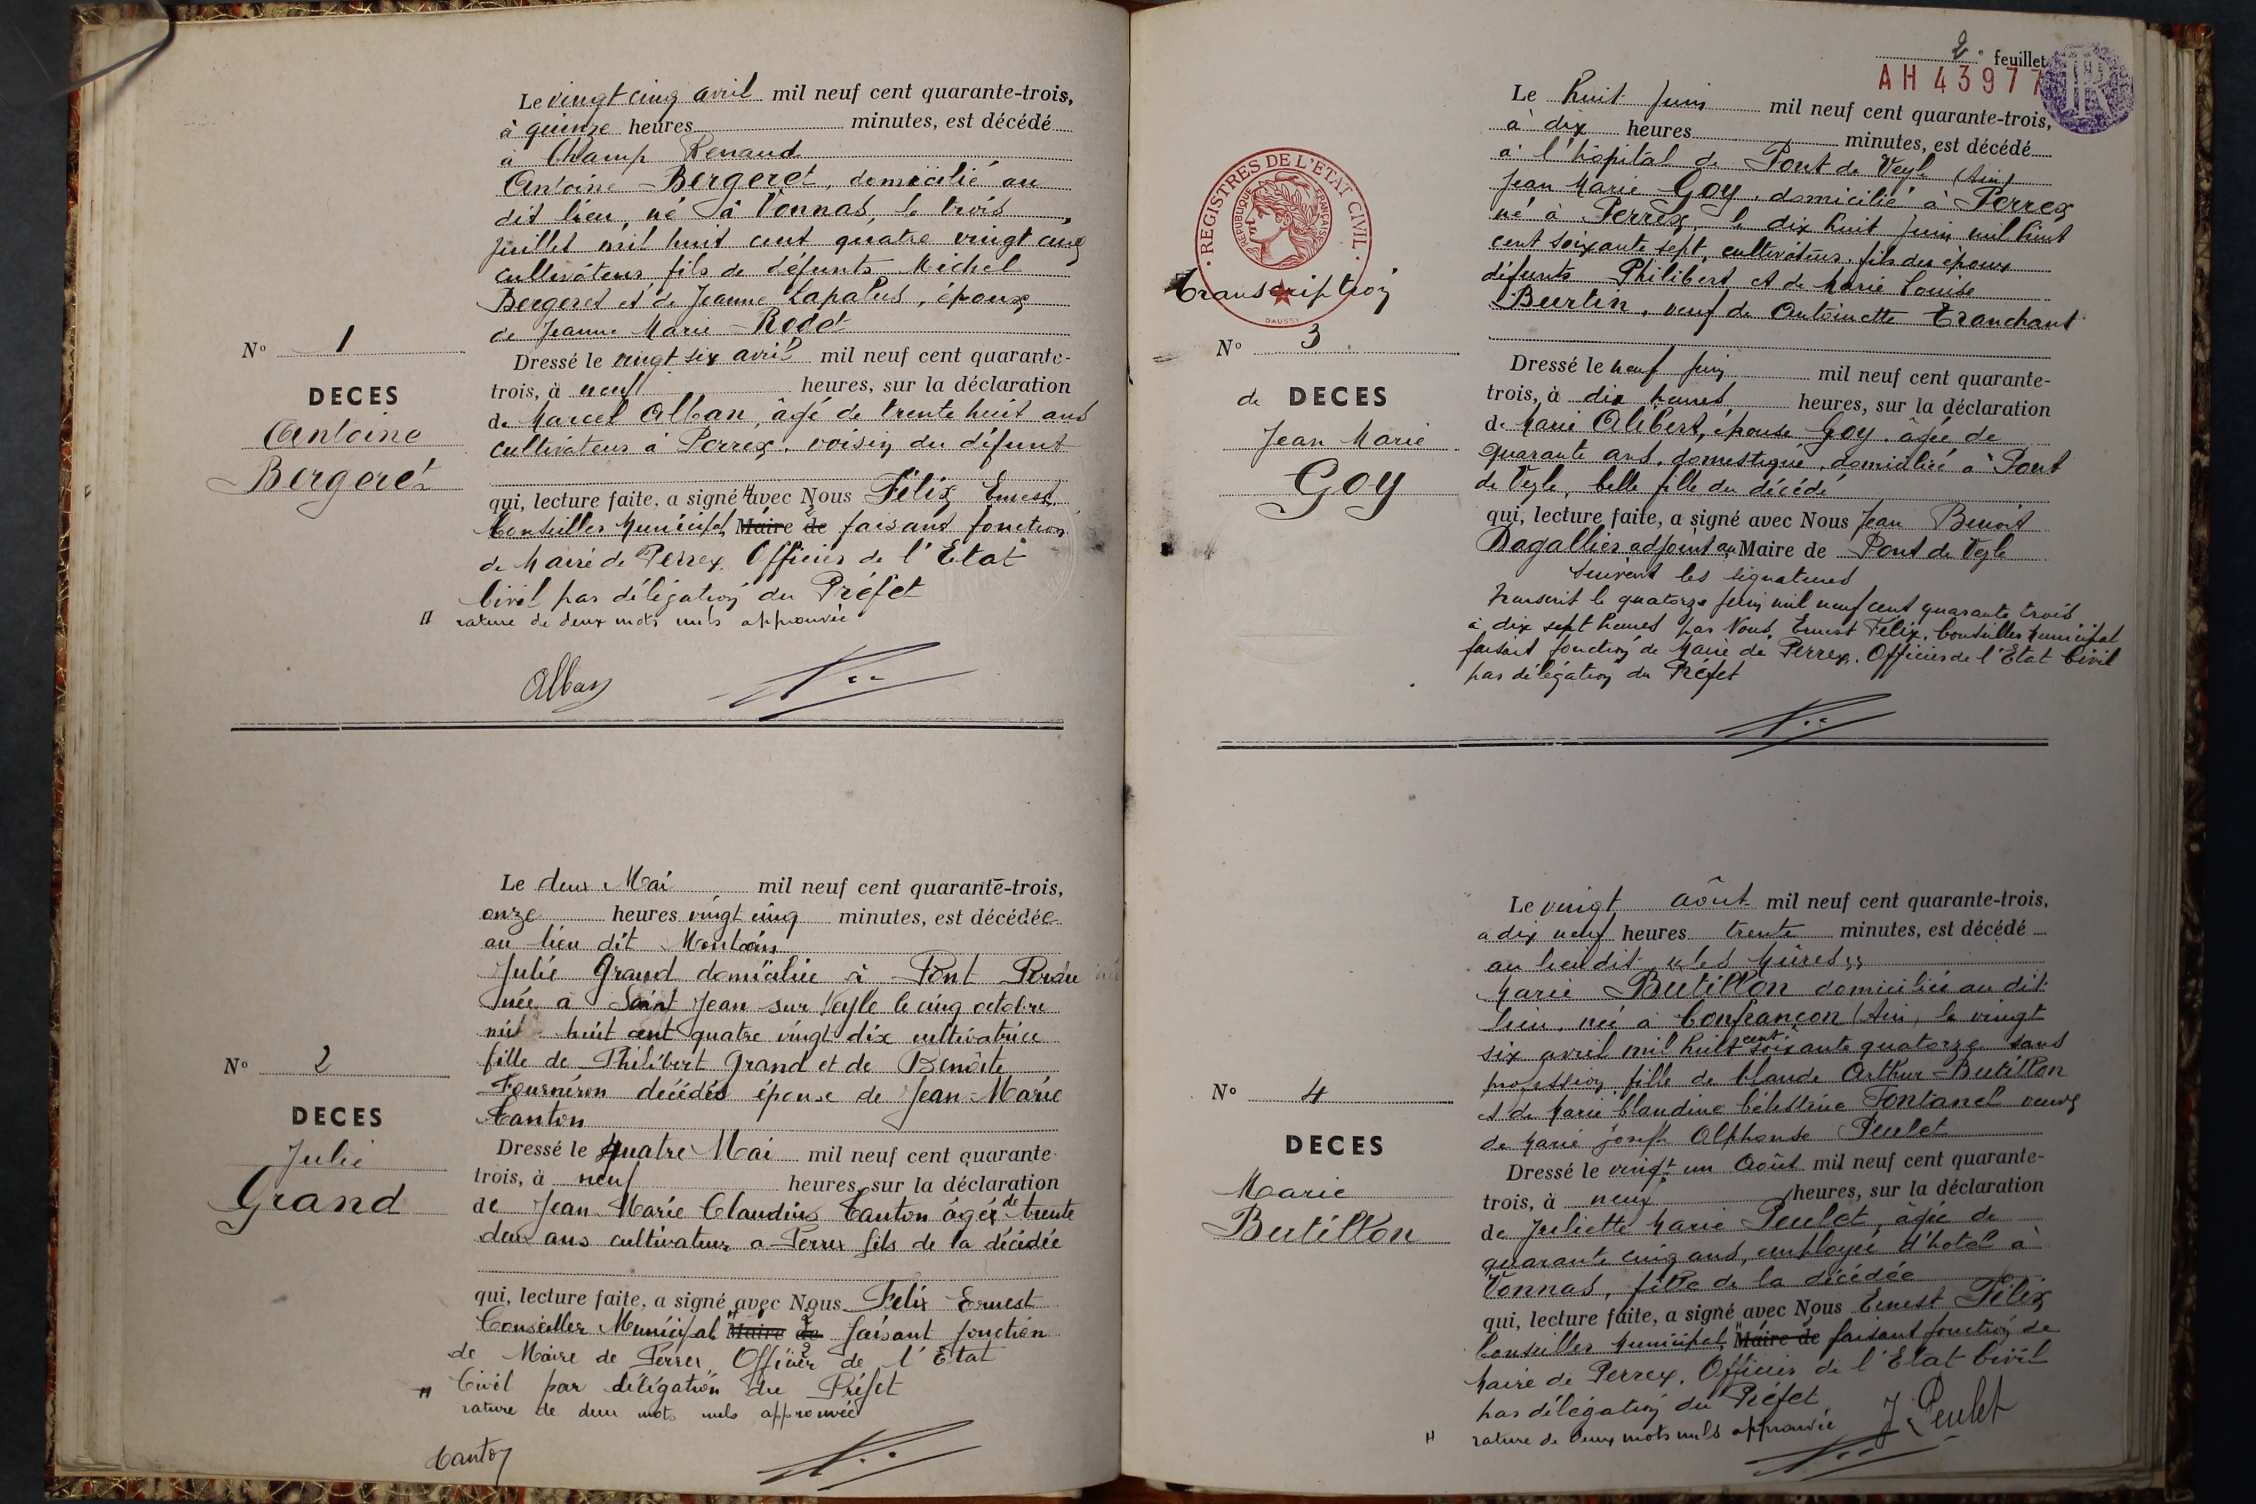 Le vingt cinq avril mil neuf cent quarante-trois,
à quinze heures minutes, est décédé
à Champ Renaud
Antoine Bergeret, domicilié au
dit lieu, né à Vonnas, le trois
juillet mil huit cent quatre vingt cinq
cultivateur, fils de défunts Michel
Bergeret et de Jeanne Lapalus, époux
de Jeanne Marie Rodet
Nº 1
DECES
Antoine
Bergeret
Dressé le vingt six avril mil neuf cent quarante-
trois, à neuf heures, sur la déclaration
de Marcel Alban, âgé de trente huit ans
cultivateur à Perrex, voisin du défunt
qui, lecture faite, a signé avec Nous Félix Ernest
Conseiller Municipal Maire de faisant fonction
de Maire de Perrex, Officier de l'Etat
Civil par délégation du Préfet
rature de deux mots nuls approuvée
Alban
Le deux Mai mil neuf cent quarante-trois,
onze heures vingt cinq minutes, est décédée
au lieu dit
Julie Grand domiciliée à Pont
née à Saint Jean sur Veyle le cinq octobre
mil huit cent quatre vingt dix cultivatrice
fille de Philibert Grand et de Benoite
Fournéron décédés épouse de Jean-Marie
Tanton
Nº 2
DECES
Julie
Grand
Dressé le quatre Mai mil neuf cent quarante-
trois, à neuf heures, sur la déclaration
de Jean Marie Claudius Tanton âgé de trente
deux ans cultivateur a Perrex fils de la décédée
qui, lecture faite, a signé avec Nous Felix Ernest
Conseiller Municipal Maire de faisant fonction
de Maire de Perrex, Officier de l'Etat
Civil par délégation du Préfet
rature de deux mots nuls approuvée
Tanton
2e feuillet
AH 43977
REGISTRES DE L'ETAT CIVIL
REPUBLIQUE FRANÇAISE
DAUSSY
Transcription
Nº 3
de DECES
Jean Marie
Goy
Le huit juin mil neuf cent quarante-trois,
à dix heures minutes, est décédé
à l'hôpital de Pont de Veyle (Ain)
Jean Marie Goy, domicilié à Perrex
né à Perrex, le dix huit juin mil huit
cent soixante sept, cultivateur, fils des époux
défunts Philibert et de Marie Louise
Burtin, veuf de Antoinette Tranchant
Dressé le neuf juin mil neuf cent quarante-
trois, à dix heures heures, sur la déclaration
de Marie Alibert, épouse Goy, âgée de
quarante ans, domestique, domiciliée à Pont
de Veyle, belle fille du décédé
qui, lecture faite, a signé avec Nous Jean Benoit
Dagallier adjoint au Maire de Pont de Veyle
suivent les signatures
Transcrit le quatorze juin mil neuf cent quarante trois
à dix sept heures par Nous, Ernest Félix, Conseiller Municipal
faisant fonction de Maire de Perrex, Officier de l'Etat Civil
par délégation du Préfet
Le vingt août mil neuf cent quarante-trois,
a dix neuf heures trente minutes, est décédé
au lieu dit "Les Mûres"
Marie Butillon domiciliée au dit
lieu, née à Confrançon (Ain), le vingt
six avril mil huit cent soixante quatorze sans
profession, fille de Claude Arthur Butillon
et de Marie Claudine Célestine Fontanel veuve
de Marie Joseph Alphonse Peulet
Nº 4
DECES
Marie
Butillon
Dressé le vingt un Août mil neuf cent quarante-
trois, à neuf heures, sur la déclaration
de Juliette Marie Peulet, âgée de
quarante cinq ans, employée d'hotel à
Vonnas, fille de la décédée
qui, lecture faite, a signé avec Nous Ernest Félix
Conseiller Municipal, Maire de faisant fonction de
Maire de Perrex, Officier de l'Etat Civil
par délégation du Préfet
rature de deux mots nuls approuvée
J. Peulet